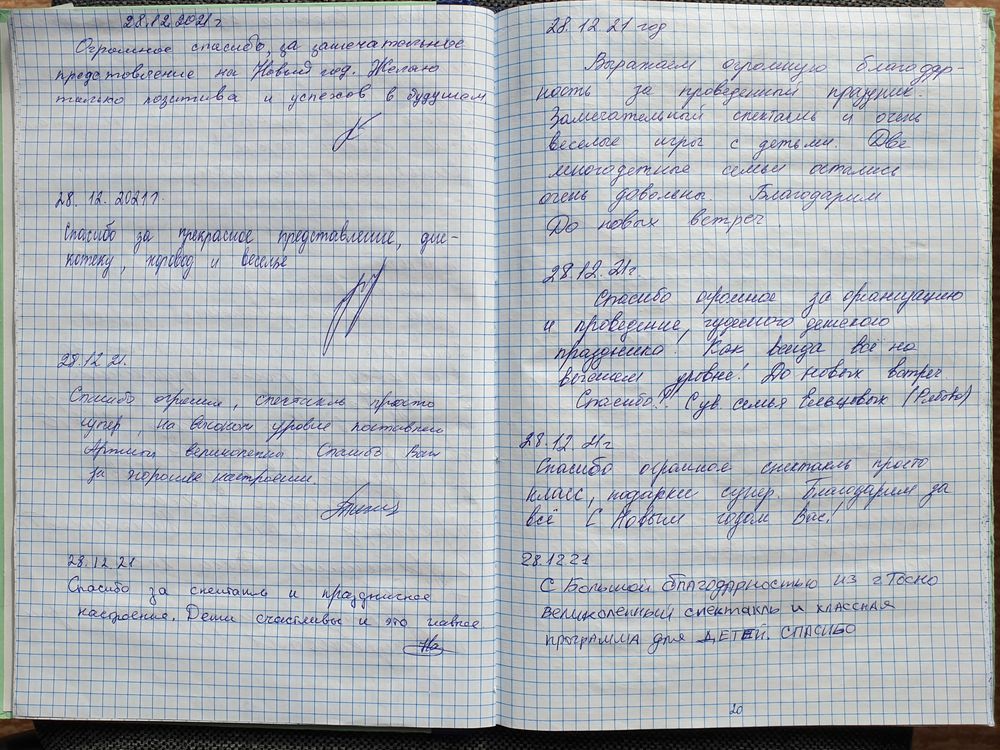 28.12.2021 г
Огромное спасибо, за замечательное
представление на Новый год. Желаю
только позитива и успехов в будущем
28. 12. 2021 г.
Спасибо за прекрасное представление, дис-
котеку, хоровод и веселье
28.12 21.
Спасибо огромное, спектакль просто
супер, на высоком уровне поставлен
Артисты великолепны Спасибо Вам
за хорошее настроение.
28.12 21
Спасибо за спектакль и праздничное
настроение. Дети счастливы и это главное
28. 12 21 год
Выражаем огромную благодар-
ность за проведенный праздник.
Замечательный спектакль и очень
веселые игры с детьми. Две
многодетные семьи остались
очень довольны. Благодарим
До новых встреч.
28.12. 21г.
Спасибо огромное за организацию
и проведение, чудесного детского
праздника! Как всегда всё на
высшем уровне! До новых встреч
Спасибо!! С ув. семья
28. 12. 21г
Спасибо огромное спектакль просто
класс, подарки супер. Благодарим за
всё С Новым годом Вас!
28.12 21
С Большой благодарностью из г Тосно
великолепный спектакль и классная
программа для ДЕТЕЙ. СПАСИБО
20